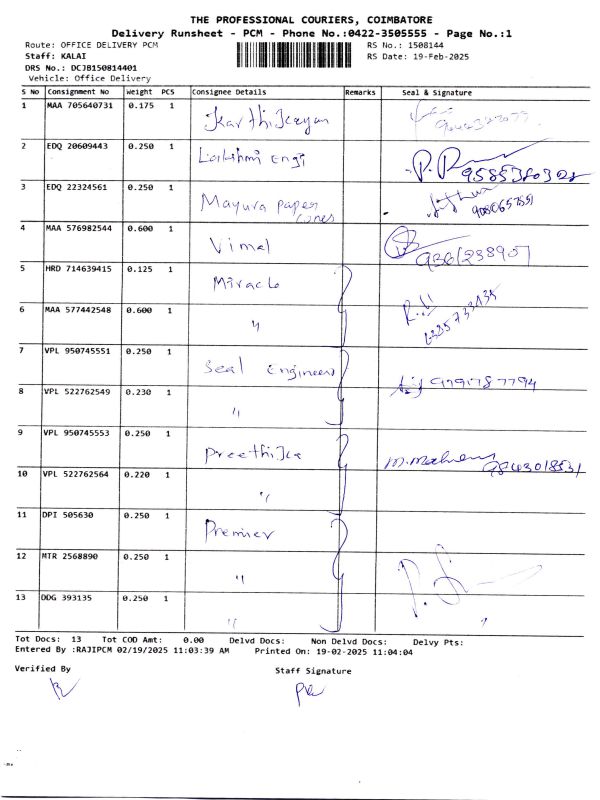 THE PROFESSIONAL COURIERS, COIMBATORE
Delivery Runsheet - PCM - Phone No.:0422-3505555 - Page No.:1
Route: OFFICE DELIVERY PCM RS No.: 1508144
Staff: KALAI RS Date: 19-Feb-2025
DRS No.: DCJB150814401
Vehicle: Office Delivery
S No Consignment No Weight PCS Consignee Details Remarks Seal & Signature
1 MAA 705640731 0.175 1 Karthikeyan
2 EDQ 20609443 0.250 1 Lakshmi Engi
3 EDQ 22324561 0.250 1 Mayura paper cones
4 MAA 576982544 0.600 1 Vimal 9361238907
5 HRD 714639415 0.125 1 Miracle
6 MAA 577442548 0.600 1 "
7 VPL 950745551 0.250 1 Seal Engineers
8 VPL 522762549 0.230 1 "
9 VPL 950745553 0.250 1 Preethika
10 VPL 522762564 0.220 1 "
11 DPI 505630 0.250 1 Premier
12 MTR 2568890 0.250 1 "
13 ODG 393135 0.250 1 " "
Tot Docs: 13 Tot COD Amt: 0.00 Delvd Docs: Non Delvd Docs: Delvy Pts:
Entered By :RAJIPCM 02/19/2025 11:03:39 AM Printed On: 19-02-2025 11:04:04
Verified By Staff Signature